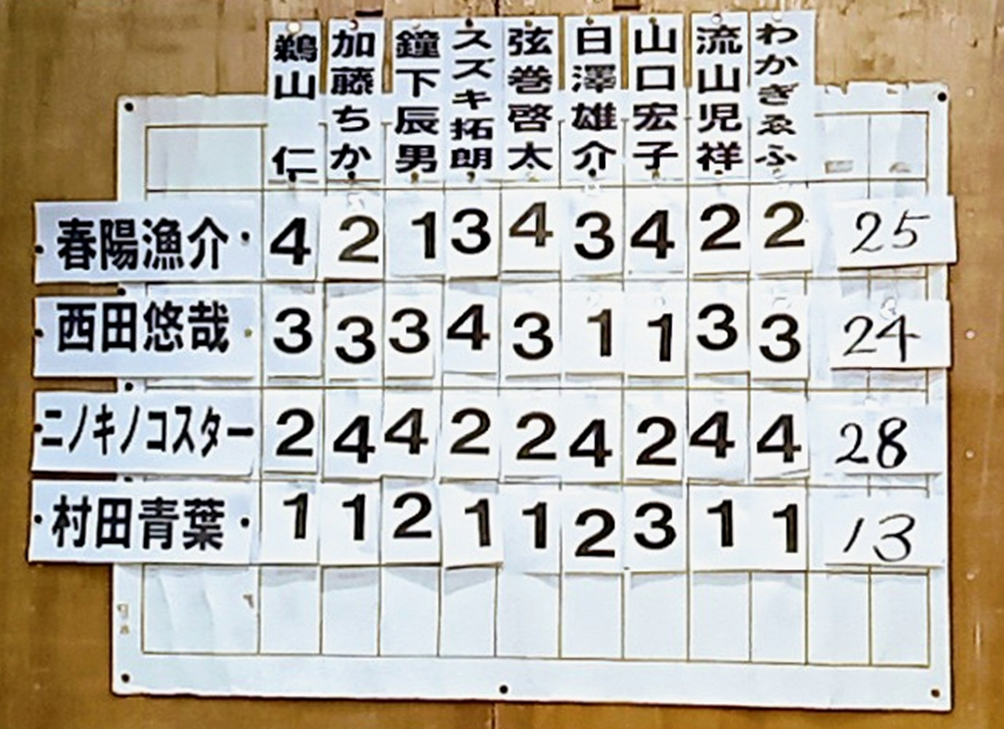 鵜山 仁
加藤ちか
鐘下辰男
スズキ拓朗
弦巻啓太
白澤雄介
山口宏子
流山児祥
わかぎゑふ
春陽漁介 4 2 1 3 4 3 4 2 2 25
西田悠哉 3 3 3 4 3 1 1 3 3 24
ニノキノコスター 2 4 4 2 2 4 2 4 4 28
村田青葉 1 1 2 1 1 2 3 1 1 13